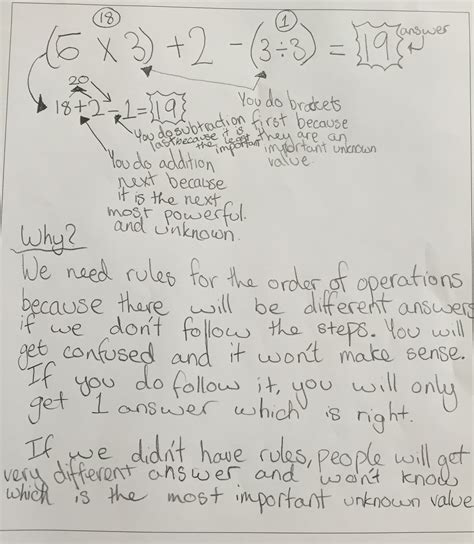 18 1
(6 x 3) + 2 - (3 ÷ 3) = 19 answer
20
18 + 2 - 1 = 19
You do brackets
first because
they are an
important unknown
value.
You do subtraction
last because it is
the least
important
You do addition
next because
it is the next
most powerful
and unknown.
Why?
We need rules for the order of operations
because there will be different answers
if we don't follow the steps. You will
get confused and it won't make sense.
If you do follow it, you will only
get 1 answer which is right.
If we didn't have rules, people will get
very different answer and won't know
which is the most important unknown value